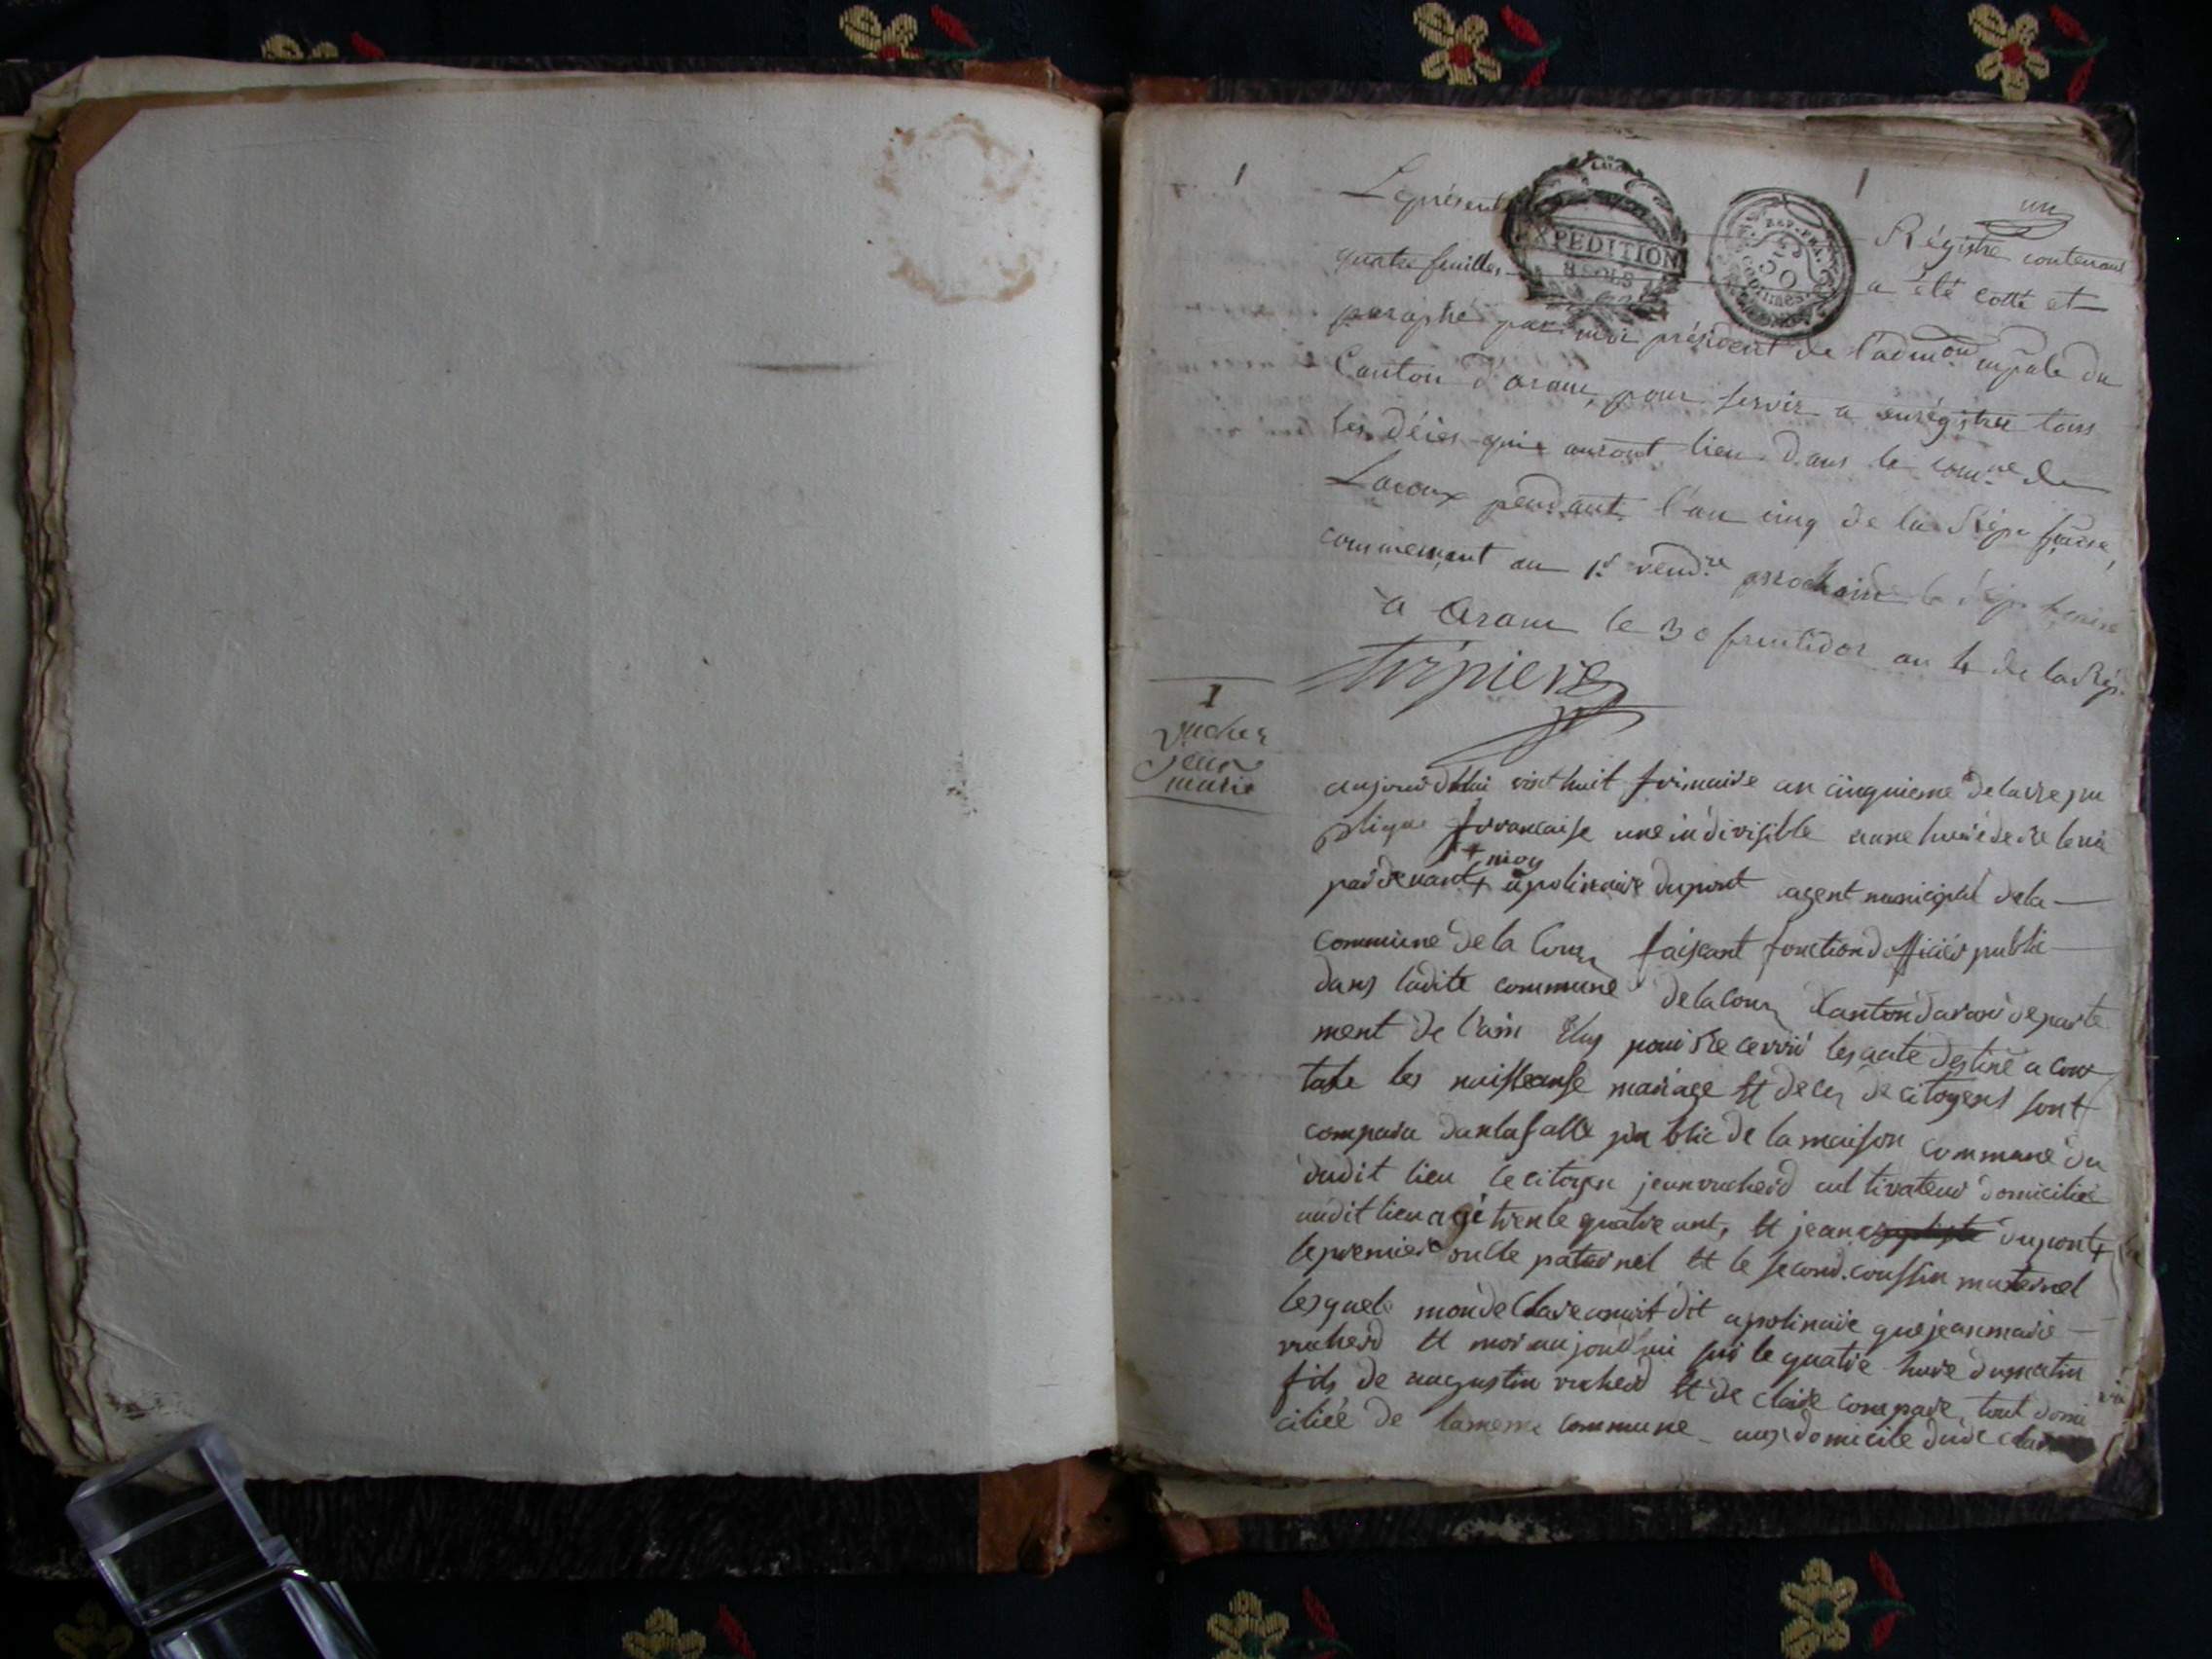 1
1
un
Le présent Régistre contenant
EXPEDITION
8 SOLS
REP. FRA.
50
quatre feuilles a été cotté et
paraphé par moi président de l'admon mpale du
Canton d'aranc, pour servir a enrégistrer tous
les décès qui auront lieu dans la comne de
Lacoux pendant l'an cinq de la Rép. fçaise,
commençant au 1er vendre prochain
a Aranc le 30 fructidor an 4 de la Rép.
1
vucher
jean
marie
aujourdhui vint huit frimaire an cinquieme de la re pu
blique francaise une indivisible
pardevant + apolinaire dupont agent municipal dela
+ moy
commune de la Coux faiseant fonction d officier public
dans ladite commune de la Coux Canton daranc departe
ment de l'ain Elus pour recevoir les acte destiné a cons
tate les naisseanse mariage Et deces de citoyens sont
comparu dans la salle pu blic de la maison commune du
dudit lieu le citoyen jean vucherd cul tivateur domicilié
audit lieu agé trente quatre ant, Et jean dupont +
le premier oncle paternel Et le second coussin maternel
lesquels mon declare a moit dit apolinaire que jean marie
vucherd Et mor aujourdhui sur le quatre hure du matin
fils de augustin vucherd Et de claire compare, tout domi
ciliée de la meme commune